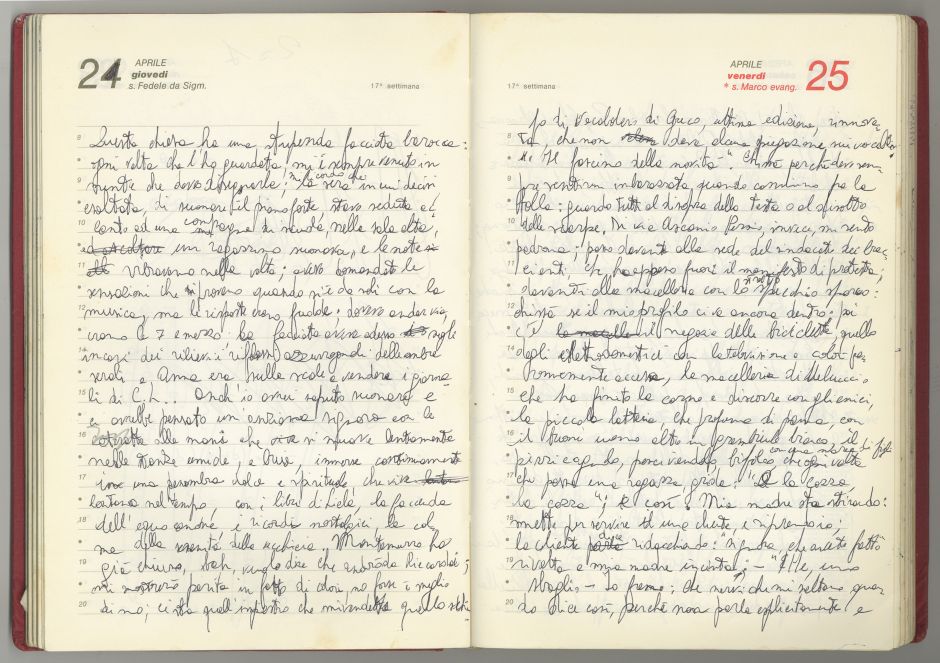 24 APRILE
giovedì
s. Fedele da Sigm.
17ª settimana
8
Questa chiesa ha una stupenda facciata barocca:
ogni volta che l'ho guardata mi è sempre venuto in
9
mente che dovrò disegnarla; mi ricordo che la sera in cui decisi
esaltata, di suonare il pianoforte stavo seduta ac
10
canto ad una compagna di scuola, nella sala alta,
ed ascoltare un ragazzino suonava, e le note
11
vibravano nella volta; avevo domandato le
sensazioni che si provano quando si è da soli con la
12
musica, ma le risposte erano fredde; dovevo andar via,
erano le 7 e mezzo; la facciata aveva adesso negli
14
incavi dei rilievi i delle ombre
serali e Anna era sulle scale a vendere i giorna
15
li di C.L. Anch'io avrei saputo suonare e
avrebbe pensato un'anziana signora con la
16
alle mani che ora si muove lentamente
nelle stanze umide, e buie, immerse continuamente
17
in una penombra dolce e spirituale che vive
lontana nel tempo, con i libri di Liala, la facciata
18
dell'equo canone i ricordi nostalgici la cal
ma della serenità della vecchiaia. Montemurro ha
19
già chiuso, beh, vuol dire che andrò da Riccardi;
mi mostrerò perita in fatto di colori, no forse è meglio
20
di no; ci sta quell'impiastro che mi rendeva quella
17ª settimana
APRILE 25
venerdì
* s. Marco evang.
fo di Vocabolario di Greco, ultima edizione, rinnova
8
ta, che non deve alcuna preposizione, ma vocaboli
"Il fascino della novità". Chissà perché devo sem
9
pre sentirmi imbarazzata, quando cammino fra la
folla; guardo tutti al di sopra della testa o al di sotto
10
delle scarpe. In via Ascanio Persio, invece, mi sento
padrona; passo davanti alla sede del sindacato dei brac
11
cianti, che ha appeso fuori il manifesto di protesta;
davanti alla macelleria con lo specchio sporco:
12
chissà se il mio profilo ci va ancora dentro; poi
c'è il negozio delle biciclette, quello
14
degli elettrodomestici con la televisione a colori pe
rennemente accesa, la macelleria di
15
che ha finito la carne e discorre con gli amici,
la piccola latteria che profuma di panna, con
16
il buon uomo alto in grembiule bianco, il
con una marea di figli
che ogni volta
17
che passa una ragazza grida: "la cozza
la cozza"; e così. Mia madre sta stirando:
18
smette per servire una cliente e riprende poi;
la cliente dice ridacchiando: "signora, che avete fatto"
19
rivolta a mia madre incinta; - "Eh, uno
sbaglio - Io fremo; che nervi che mi saltano quan
20
do dice così, perché non parla esplicitamente e